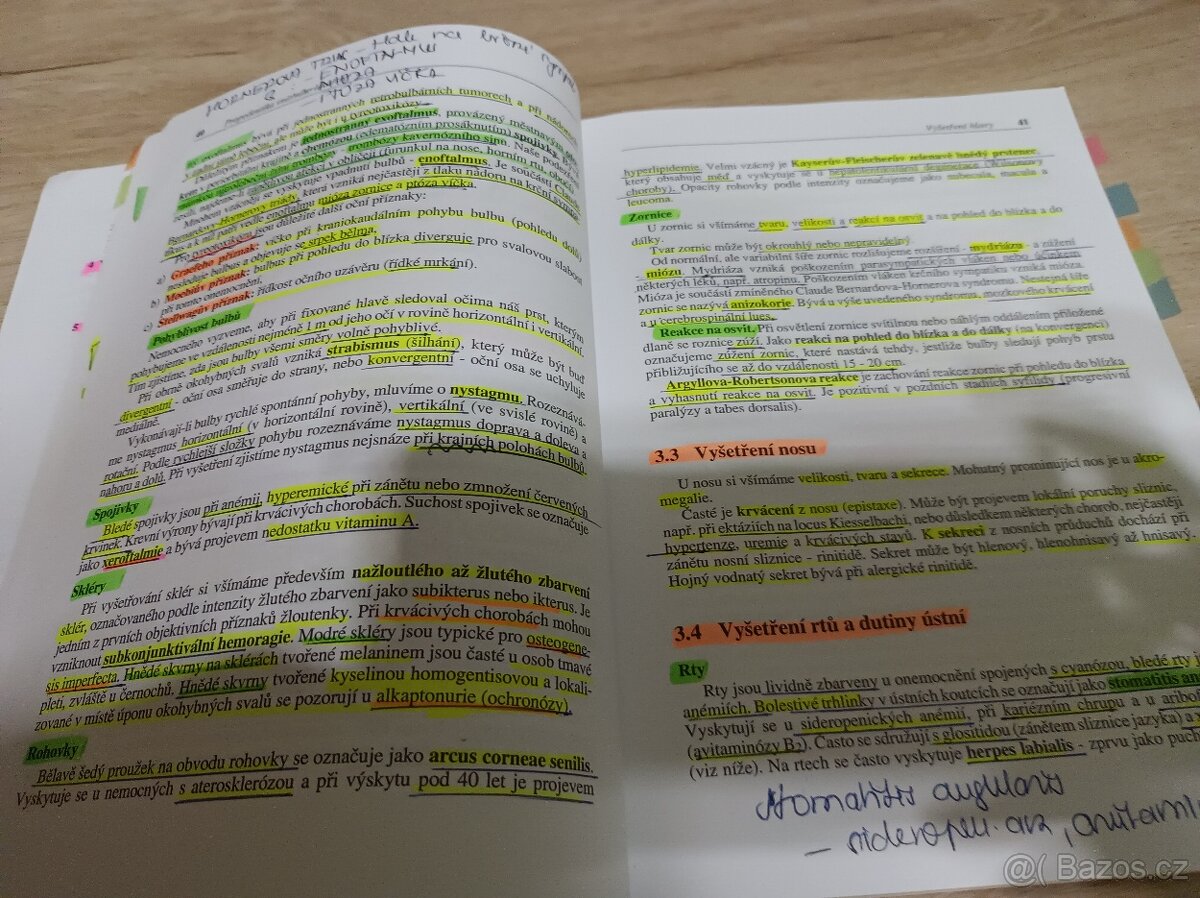 HORNEROVA TRIAS -
- ENOFTALMUS
- MIOZA
- PTOZA VÍČKA
40
exoftalmus bývá při jednostranných retrobulbárních tumorech a při
může být i u tyreotoxikózy.
jednostranný exoftalmus, provázený městnavým
krajině a chemózou (edematózním prosáknutím) spojivky.
trombózy kavernózního sinu. Naše
v obličeji (furunkul na nose, horním rtu,
Mnohem vzácněji se vyskytuje vpadnutí bulbů - enoftalmus. Je součástí
Bernardovy-Hornerovy triády, která vzniká nejčastěji z tlaku nádoru na krční
a k níž patří vedle enoftalmu mióza zornice a ptóza víčka.
jsou důležité další oční příznaky:
a) Graefeho příznak: víčko při kraniokaudálním pohybu bulbu (pohledu dolů)
nesleduje bulbus a objevuje se srpek bělma,
b) Moebiův příznak: bulbus při pohledu do blízka diverguje pro svalovou slabost
při tomto onemocnění.
c) Stellwagův příznak: řídkost očního uzávěru (řídké mrkání).
Pohyblivost bulbů
Nemocného vyzveme, aby při fixované hlavě sledoval očima náš prst, kterým
pohybujeme ve vzdálenosti nejméně 1 m od jeho očí v rovině horizontální i vertikální.
Tím zjistíme, zda jsou bulby všemi směry volně pohyblivé.
Při obrně okohybných svalů vzniká strabismus (šilhání), který může být buď
divergentní - oční osa směřuje do strany, nebo konvergentní - oční osa se uchyluje
mediálně.
Vykonávají-li bulby rychlé spontánní pohyby, mluvíme o nystagmu. Rozeznává-
me nystagmus horizontální (v horizontální rovině), vertikální (ve svislé rovině) a
rotační. Podle rychlejší složky pohybu rozeznáváme nystagmus doprava a doleva a
nahoru a dolů. Při vyšetření zjistíme nystagmus nejsnáze při krajních polohách bulbů.
Spojivky
Bledé spojivky jsou při anémii, hyperemické při zánětu nebo zmnožení červených
krvinek. Krevní výrony bývají při krvácivých chorobách. Suchost spojivek se označuje
jako xeroftalmie a bývá projevem nedostatku vitaminu A.
Skléry
Při vyšetřování sklér si všímáme především nažloutlého až žlutého zbarvení
sklér, označovaného podle intenzity žlutého zbarvení jako subikterus nebo ikterus. Je
jedním z prvních objektivních příznaků žloutenky. Při krvácivých chorobách mohou
vzniknout subkonjunktivální hemoragie. Modré skléry jsou typické pro osteogene-
sis imperfecta. Hnědé skvrny na sklérách tvořené melaninem jsou časté u osob tmavé
pleti, zvláště u černochů. Hnědé skvrny tvořené kyselinou homogentisovou a lokali-
zované v místě úponu okohybných svalů se pozorují u alkaptonurie (ochronózy).
Rohovky
Bělavě šedý proužek na obvodu rohovky se označuje jako arcus corneae senilis.
Vyskytuje se u nemocných s aterosklerózou a při výskytu pod 40 let je projevem
4
5
Vyšetření hlavy 41
hyperlipidemie. Velmi vzácný je Kayserův-Fleischerův zelenavě hnědý prstenec,
který obsahuje měď a vyskytuje se u hepatolentikulární degenerace (Wilsonovy
choroby). Opacity rohovky podle intenzity označujeme jako nubecula, macula a
leucoma.
Zornice
U zornic si všímáme tvaru, velikosti a reakcí na osvit a na pohled do blízka a do
dálky.
Tvar zornic může být okrouhlý nebo nepravidelný.
Od normální, ale variabilní šíře zornic rozlišujeme rozšíření - mydriázu - a zúžení
- miózu. Mydriáza vzniká poškozením parasympatických vláken nebo účinkem
některých léků, např. atropinu. Poškozením vláken krčního sympatiku vzniká mióza.
Mióza je součástí zmíněného Claude Bernardova-Hornerova syndromu. Nestejná šíře
zornic se nazývá anizokorie. Bývá u výše uvedeného syndromu, mozkového krvácení
a u cerebrospinální lues.
Reakce na osvit. Při osvětlení zornice svítilnou nebo náhlým oddálením přiložené
dlaně se roznice zúží. Jako reakci na pohled do blízka a do dálky (na konvergenci)
označujeme zúžení zornic, které nastává tehdy, jestliže bulby sledují pohyb prstu
přibližujícího se až do vzdálenosti 15 - 20 cm.
Argyllova-Robertsonova reakce je zachování reakce zornic při pohledu do blízka
a vyhasnutí reakce na osvit. Je pozitivní v pozdních stadiích syfilidy (progresivní
paralýzy a tabes dorsalis).
3.3 Vyšetření nosu
U nosu si všímáme velikosti, tvaru a sekrece. Mohutný prominující nos je u akro-
megalie.
Časté je krvácení z nosu (epistaxe). Může být projevem lokální poruchy sliznic,
např. při ektáziích na locus Kiesselbachi, nebo důsledkem některých chorob, nejčastěji
hypertenze, uremie a krvácivých stavů. K sekreci z nosních průduchů dochází při
zánětu nosní sliznice - rinitidě. Sekret může být hlenový, hlenohnisavý až hnisavý.
Hojný vodnatý sekret bývá při alergické rinitidě.
3.4 Vyšetření rtů a dutiny ústní
Rty
Rty jsou lividně zbarveny u onemocnění spojených s cyanózou, bledé rty
anémiích. Bolestivé trhlinky v ústních koutcích se označují jako stomatitis
Vyskytují se u sideropenických anémií, při kariézním chrupu a u
(avitaminózy B2). Často se sdružují s glositidou (zánětem sliznice jazyka)
(viz níže). Na rtech se často vyskytuje herpes labialis - zprvu jako
stomatitis angularis
- sideropen.
@( Bazos.cz